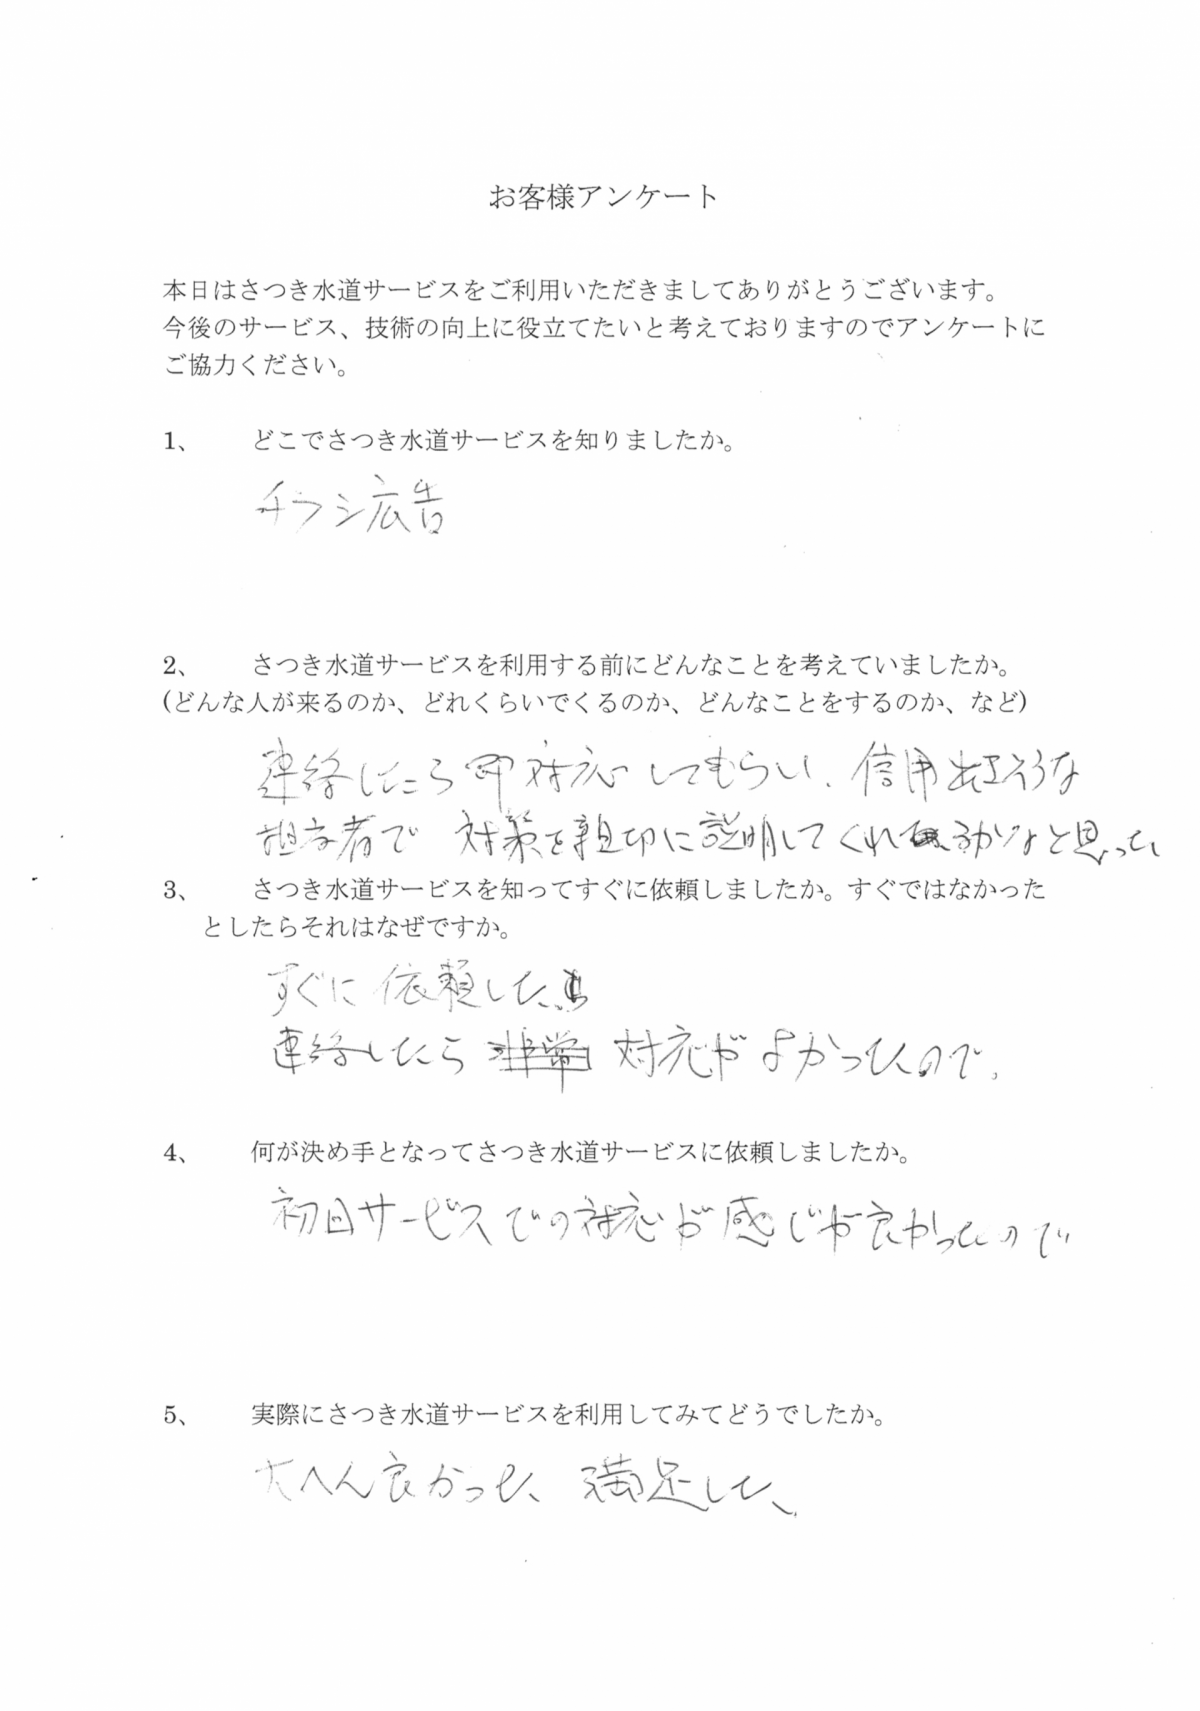 お客様アンケート
本日はさつき水道サービスをご利用いただきましてありがとうございます。
今後のサービス、技術の向上に役立てたいと考えておりますのでアンケートに
ご協力ください。
1、 どこでさつき水道サービスを知りましたか。
チラシ広告
2、 さつき水道サービスを利用する前にどんなことを考えていましたか。
(どんな人が来るのか、どれくらいでくるのか、どんなことをするのか、など)
連絡したら即対応してもらい、信用出来そうな
担当者で 対策を親切に説明してくれるかなと思った
3、 さつき水道サービスを知ってすぐに依頼しましたか。すぐではなかった
としたらそれはなぜですか。
すぐに依頼した。
連絡したら 対応がよかったので。
4、 何が決め手となってさつき水道サービスに依頼しましたか。
初回サービスでの対応が感じが良かったので
5、 実際にさつき水道サービスを利用してみてどうでしたか。
大へん良かった、満足した、